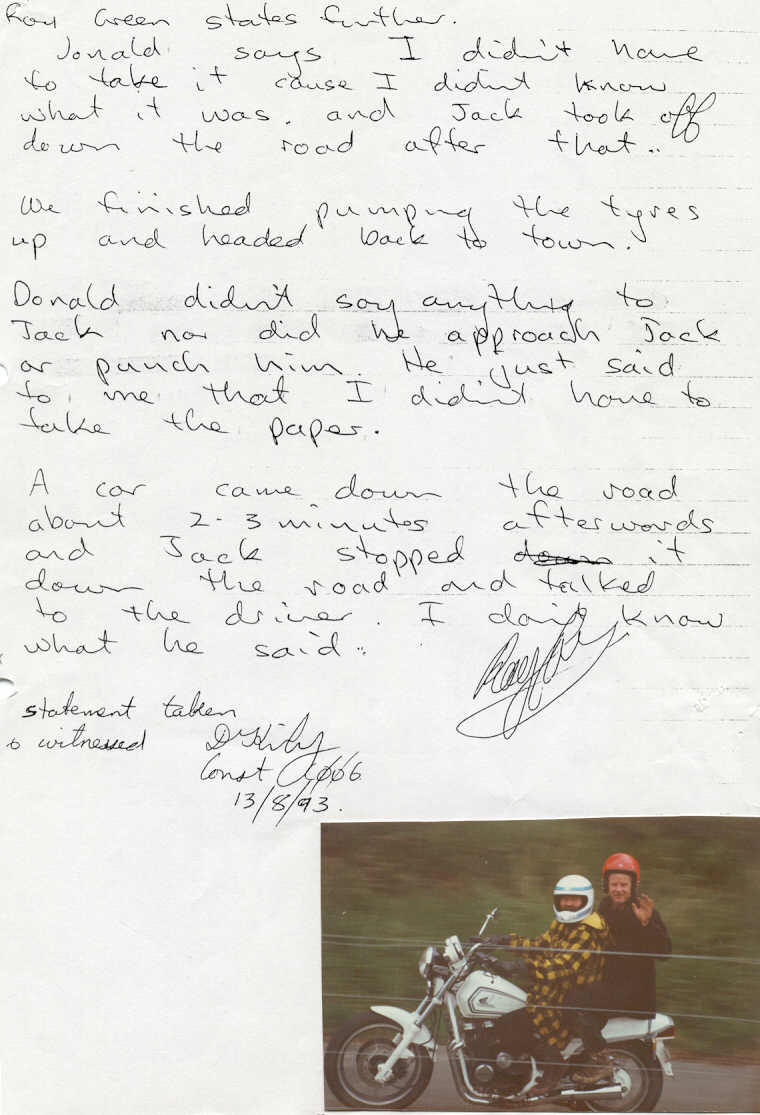 Ray Green states further.
Donald says I didn't have
to take it cause I didn't know
what it was. and Jack took off
down the road after that..
We finished pumping the tyres
up and headed back to town.
Donald didn't say anything to
Jack nor did he approach Jack
or punch him. He just said
to me that I didn't have to
take the paper.
A car came down the road
about 2-3 minutes afterwords
and Jack stopped down it
down the road and talked
to the driver. I don't know
what he said..
statement taken
& witnessed
Const
13/8/93.